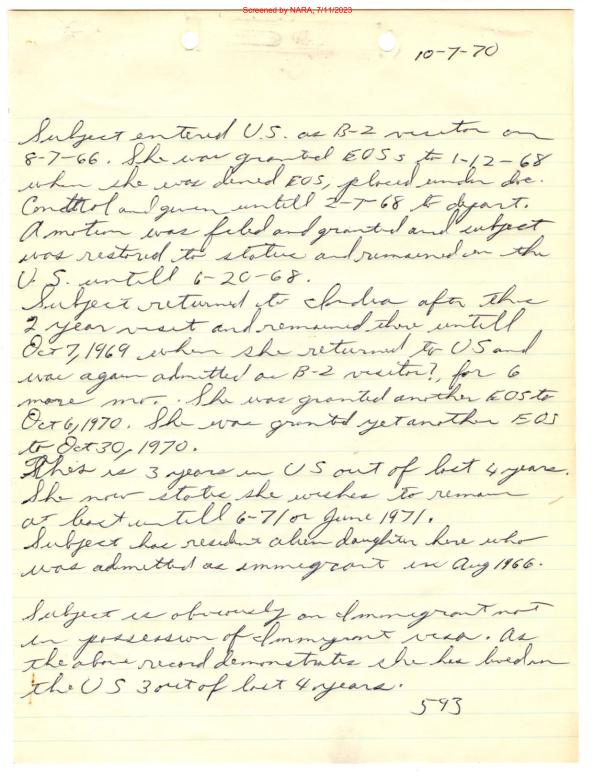 Screened by NARA, 7/11/2023
10-7-70
Subject entered U.S. as B-2 visitor on
8-7-66. She was granted EOSs to 1-12-68
when she was denied EOS, placed under doc.
Condttol and given untill 2-7-68 to depart.
A motion was filed and granted and subject
was restored to status and remained in the
U.S. untill 6-20-68.
Subject returned to India after this
2 year visit and remained there untill
Oct 7, 1969 when she returned to US and
was again admitted as B-2 visitor?, for 6
more mo. . She was granted another EOS to
Oct 6, 1970. She was granted yet another EOS
to Oct 30, 1970.
This is 3 years in US out of last 4 years.
She now states she wishes to remain
at least untill 6-71 or June 1971.
Subject has resident alien daughter here who
was admitted as immigrant in Aug 1966.
Subject is obviously an Immigrant not
in possession of Immigrant visa. As
the above record demonstrates she has lived in
the US 3 out of last 4 years.
593